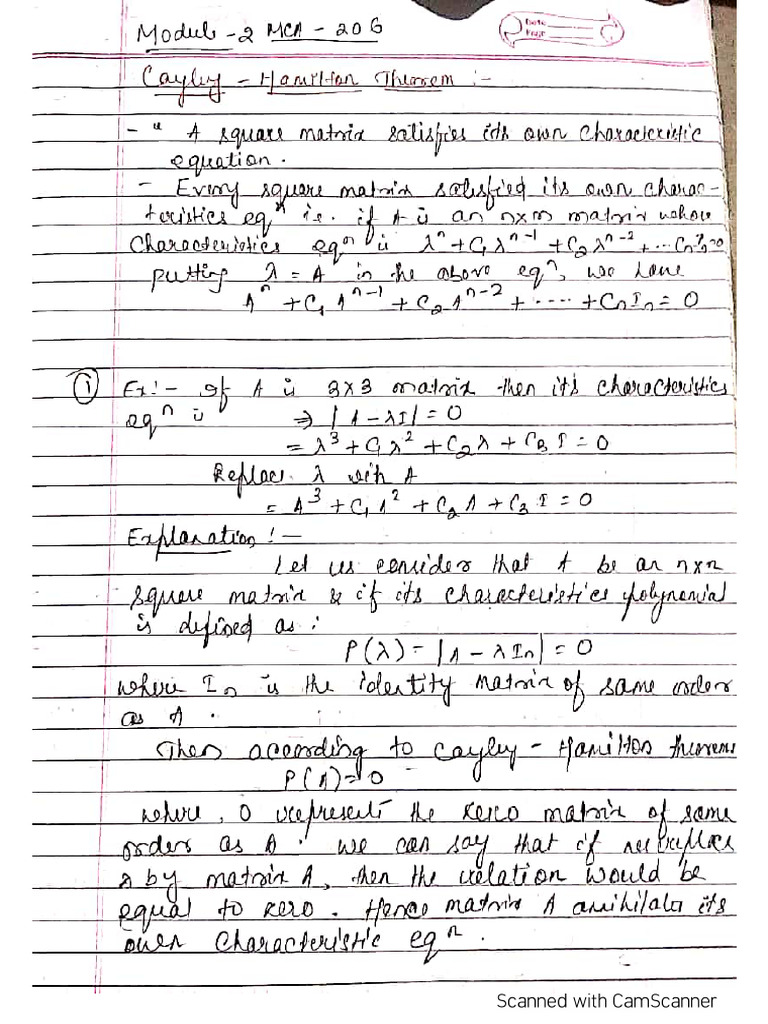 Module-2 MCA-206
Date
Page
Cayley-Hamilton Theorem :-
- " A square matrix satisfies its own characteristic
equation.
- Every square matrix satisfied its own charac-
teristics eqn ie. if A is an n×n matrix whose
Characteristics eqn is λ^n + C₁λ^n-1 + C₂λ^n-2 + ... Cn =0
putting λ = A in the above eqn, we have
A^n + C₁ A^n-1 + C₂A^n-2 + ---- + CnIn = 0
① Ex:- If A is 3×3 matrix then its characteristics
eqn is ⇒ |A-λI| = 0
= λ³ + C₁λ² + C₂λ + C₃ I = 0
Replace λ with A
= A³ + C₁A² + C₂A + C₃ I = 0
Explanation :-
Let us consider that A be an n×n
square matrix & if its characteristics polynomial
is defined as :
P(λ) = |A - λIn| = 0
where In is the identity matrix of same order
as A.
Then according to Cayley-Hamilton theorem
P(A)=0
where, 0 represents the zero matrix of same
order as A. we can say that if we replace
λ by matrix A, then the relation would be
equal to zero. Hence matrix A annihilates its
own characteristic eqn.
Scanned with CamScanner